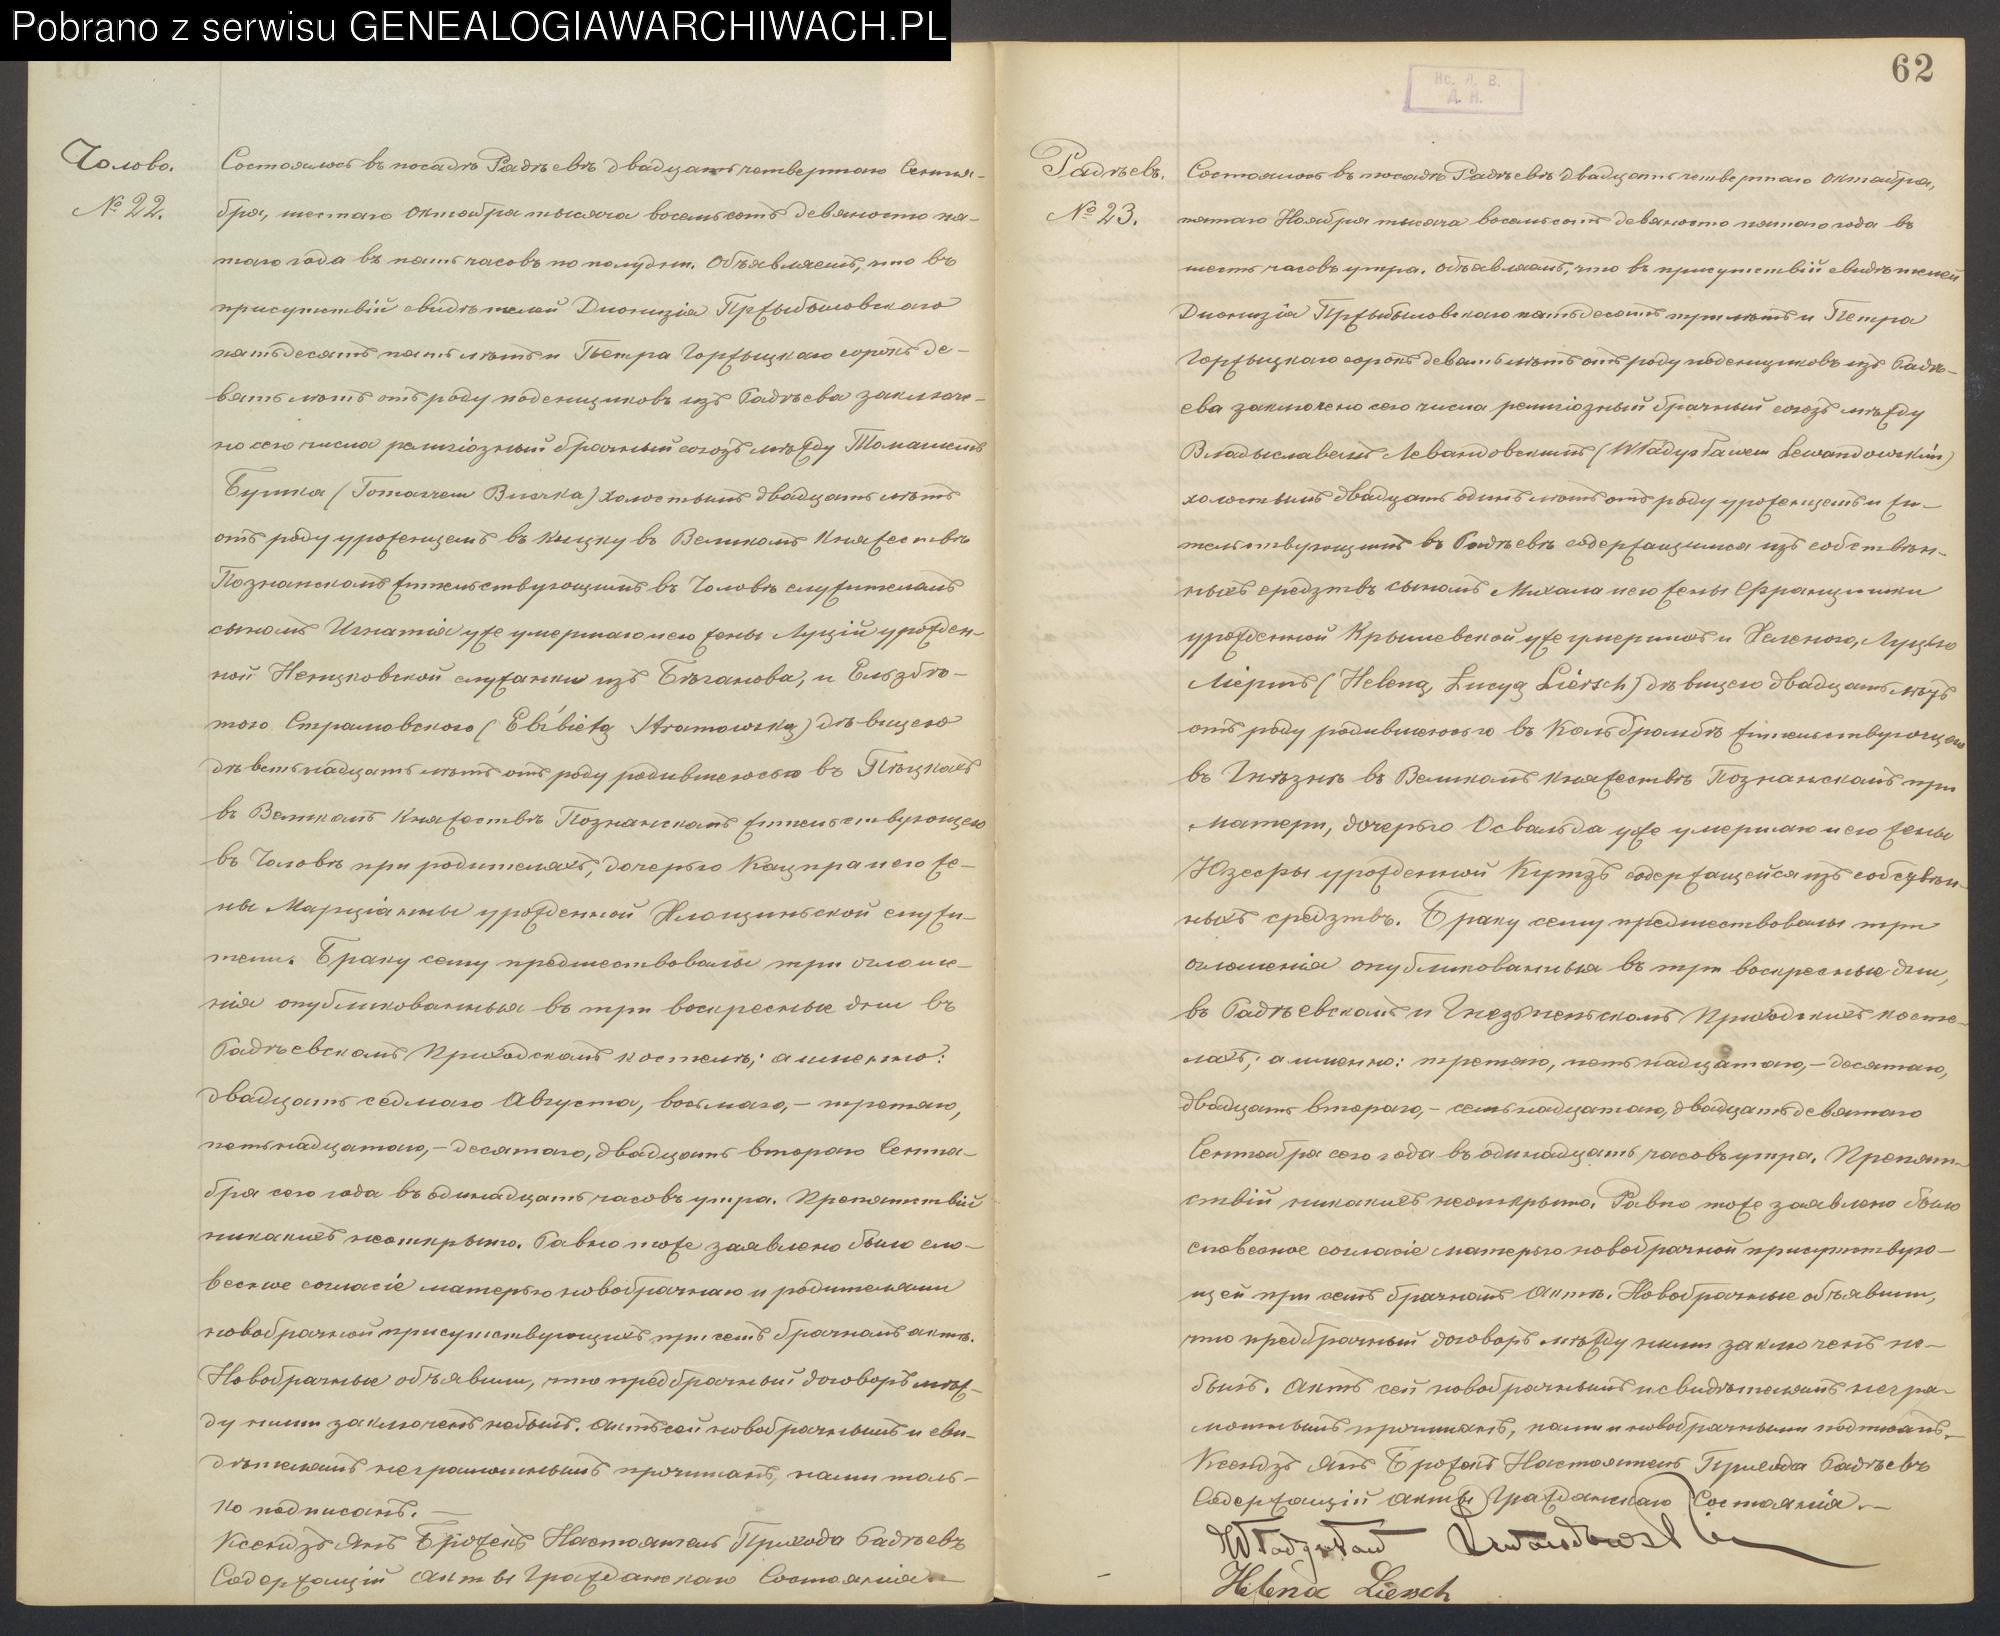 Pobrano z serwisu GENEALOGIAWARCHIWACH.PL
Чолово.
№ 22.
Состоялось въ посадѣ Радѣевѣ двадцать четвертаго Сентя-
бря, шестаго Октоября тысяча восемьсотъ девяносто пя-
таго года въ пять часовъ по полудни. Объявляемъ, что въ
присутствій свидѣтелей Діонизія Пржыбыловскаго
пятьдесятъ пять лѣтъ и Петра Горжыцкаго сорокъ де-
вять лѣтъ отъ роду поденщиковъ изъ Радѣева заключе-
но сего числа религіозный брачный союзъ мѣжду Томашемъ
(Tomaszem) холостымъ двадцать лѣтъ
отъ роду уроженцемъ въ въ Великомъ Княжествѣ
Познанскомъ жительствующимъ въ Чоловѣ служителемъ
сыномъ Игнатія уже умершаго и его жены Луцій урожден-
ной служанки изъ и Ельзбѣ-
тою Страмовского (Elżbietą Stramowską) дѣвицею
лѣтъ отъ роду родившеюсью въ
въ Великомъ Княжествѣ Познанскомъ жительствующею
въ Чоловѣ при родителяхъ, дочерью Кацпра и его же-
ны Марціанны урожденной служи-
тели. Браку сему предшествовалы три оглаше-
нія опубликованныя въ три воскресные дни въ
Радѣевскомъ Приходскомъ костелѣ; а именно:
двадцать седмаго Августа, восьмаго, – третяго,
петьнадцатаго, – десятаго, двадцать втораго Сентя-
бря сего года въ одинадцать часовъ утра. Препятствій
никакихъ неоткрыто. Равно тоже заявлено было сло-
весное согласіе матерью новобрачнаго и родителями
новобрачной присутствующихъ при семъ брачномъ актѣ.
Новобрачные объявили, что предбрачный договоръ мѣж-
ду ними заключенъ небылъ. Актъ сей новобрачнымъ и сви-
дѣтелямъ неграмотнымъ прочитанъ, нами толь-
ко подписанъ. —
Ксендзъ Янъ Настоятель Прихода Радѣевъ
Содержащій акты Гражданскаго Состоянія. —
62
Радѣевъ.
№ 23.
Состоялось въ посадѣ Радѣевѣ двадцать четвертаго Октоября,
пятаго Ноября тысяча восемьсотъ девяносто пятаго года въ
шесть часовъ утра. Объявляемъ, что въ присутствій свидѣтелей
Діонизія Пржыбыловскаго пятьдесятъ три лѣтъ и Петра
Горжыцкаго сорокъ девять лѣтъ отъ роду поденщиковъ изъ Радѣ-
ева заключено сего числа религіозный брачный союзъ мѣжду
Владыславемъ Левандовскимъ (Władysławem Lewandowskim)
холостымъ двадцать одинъ лѣтъ отъ роду уроженцемъ и жи-
тельствующимъ въ Радѣевѣ содержащимся изъ собствен-
ныхъ средзтвъ сыномъ Михала и его жены Францишки
урожденной Крышевской уже умершихъ и Хеленою, Луцыю
Ліершъ (Heleną, Lucyą Liersch) дѣвицею двадцать лѣтъ
отъ роду родившеюсью въ жительствующею
въ Гнѣзнѣ въ Великомъ Княжествѣ Познанскомъ при
матери, дочерью Освальда уже умершаго и его жены
Юзефы урожденной содержащейся изъ собствен-
ныхъ средзтвъ. Браку сему предшествовалы три
оглошенія опубликованныя въ три воскресные дни,
въ Радѣевскомъ и Гнезненьскомъ Приходскихъ косте-
лахъ; а именно: третяго, петьнадцатаго, – десятаго,
двадцать втораго, – семьнадцатаго, двадцать девятаго
Сентоября сего года въ одинадцать часовъ утра. Препят-
ствій никакихъ неоткрыто. Равно тоже заявлено было
словесное согласіе матерью новобрачной присутствую-
щей при семъ брачномъ актѣ. Новобрачные объявили,
что предбрачный договоръ мѣжду ними заключенъ не-
былъ. Актъ сей новобрачнымъ и свидѣтелямъ негра-
мотнымъ прочитанъ, нами и новобрачными подписанъ. —
Ксендзъ Янъ Настоятель Прихода Радѣевъ
Содержащій акты Гражданскаго Состоянія. —
Władysław Lewandowski
Helena Liersch